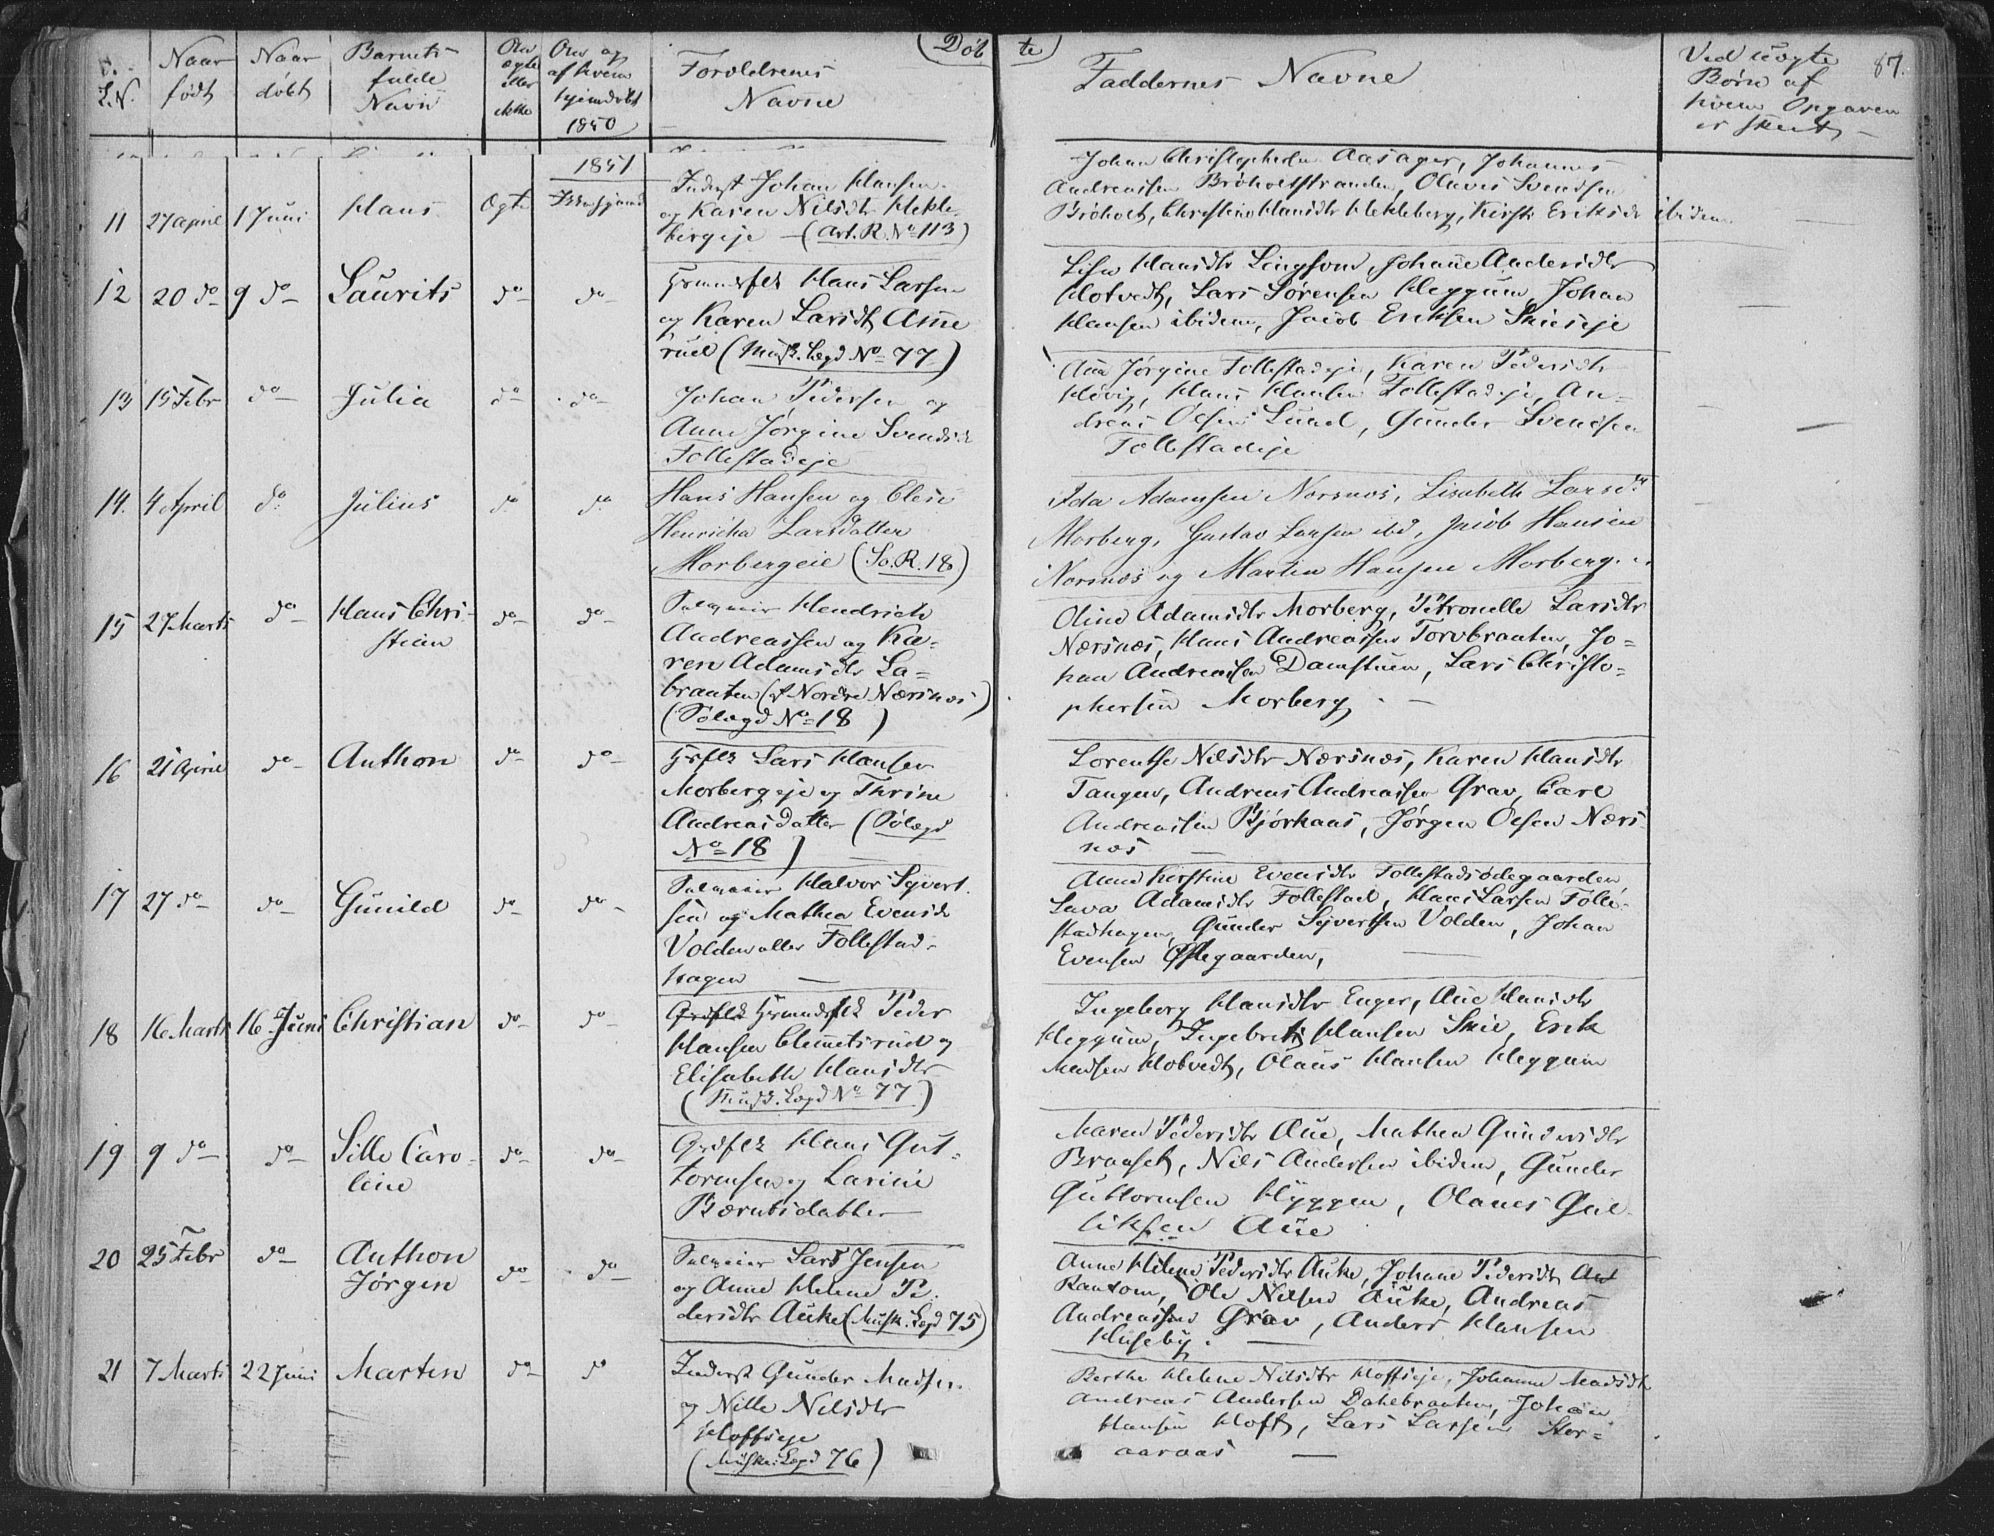 Döb te
87.
L.N.
Naar
født
Naar
døbt
Barnets
fulde
Navn
Om
ægte
eller
ikke
Om og
af hvem
hjemdøbt
1850
Forældrenes
Navne
Faddernes Navne
Ved uægte
Børn af
hvem Opgaven
er skeet
1851
11 27 April 1 Juni Hans Ægte
Inderst Johan Hansen
og Karen Nilsdtr Hekle-
bergeje - (Art. R. No 113)
Johan Christophersen Aasager, Johannes
Andreassen Brøholtstranden, Olaves Svendsen
Brøholt, Christine Hansdtr Hekleberg, Kirsti Eriksdr ibidem
12 20 do 9 do Laurits do do
Hans Larsen
og Karen Larsdtr Anne
rud (Musk. Lægd No 77)
Lise Hansdtr Lingsom, Johanne Andersdtr
Hotvedt, Lars Sørensen Heggum, Johan
Hansen ibidem, Jacob Eriksen Skieseje
13 15 Febr do Julia do do
Johan Pedersen og
Anne Jørgine Svendsd
Follestadeje
Ane Jørgine Follestadeje, Karen Pedersdtr
Høvig, Hans Hansen Follestadeje, An-
dreas Olsen Lund, Gunder Svendsen
Follestadeje
14. 4 April do Julius do do
Hans Hansen og Elise
Henricka Larsdatter
Morbergeie (So. R. 18)
Ida Adamsen Nærsnæs, Lisabeth Larsdtr
Morberg, Gustav Larsen ibd, Jacob Hansen
Nærsnæs og Martin Hansen Morberg.
15 27 Marts do Hans Chri-
stian do do
Hendrich
Andreassen og Ka-
ren Adamsdtr La-
braaten (af Nordre Nærsnæs)
(Sølægd No 18)
Oline Adamsdtr Morberg, Petronelle Larsdtr
Nærsnæs, Hans Andreassen Torvbraaten, Jo-
han Andreassen Damstuen, Lars Christo-
phersen Morberg
16 21 April do Anthon do do
Lars Hansen
Morbergeje og Thrine
Andreasdatter (Sølægd
No 18)
Lorentse Nilsdtr Nærsnæs, Karen Hansdtr
Tangen, Andreas Andreassen Grav, Carl
Andreassen Bjørkaas, Jørgen Olsen Nærs
næs
17 27 do do Gunild do do
Halvor Syvert-
sen og Mathea Evensdr
Volden eller Follestad-
hagen
Anne Kirstine Evensdtr Follestadsødegaarden
Lava Adamsdtr Follestad, Hans Larsen Folle-
stadhagen, Gunder Syvertsen Volden, Johan
Evensen Ødegaarden,
18 16 Marts 16 Juni Christian do do
Peder
Hansen Clemetsrud og
Elisabeth Hansdtr
(Musk. Lægd No 77)
Ingeborg Hansdtr Enger, Ane Hansdtr
Heggum, Ingebret Hansen Skie, Erik
Madsen Hotvedt, Olaus Hansen Heggum
19 9 do do Sille Caro-
line do do
Hans Gut-
tormsen og Larine
Børntsdatter
Maren Pedersdtr Aue, Mathea Gundersdtr
Braaset, Nils Andersen ibidem, Gunder
Guttormsen Hyggen, Olaves Gul
liksen Aue
20 25 Febr do Anthon
Jørgen do do
Lars Jensen
og Anne Helene Pe-
dersdtr Auke (Musk. Lægd 75)
Anne Helene Pedersdtr Auke, Johane Pedersdtr
Ole Nilsen Auke, Andreas
Andreassen Grav, Anders Hansen
Huseby.
21 7 Marts 22 Juni Marten do do
Inderst Gunder Madsen
og Nille Nilsdtr
Hoffseje
(Muske. Lægd 76)
Berthe Helene Nilsdtr Hoffseje, Johanne Madsdtr
Andreas Andersen Dalebraaten, Johan
Hansen Hoff, Lars Larsen Stor-
aaraas